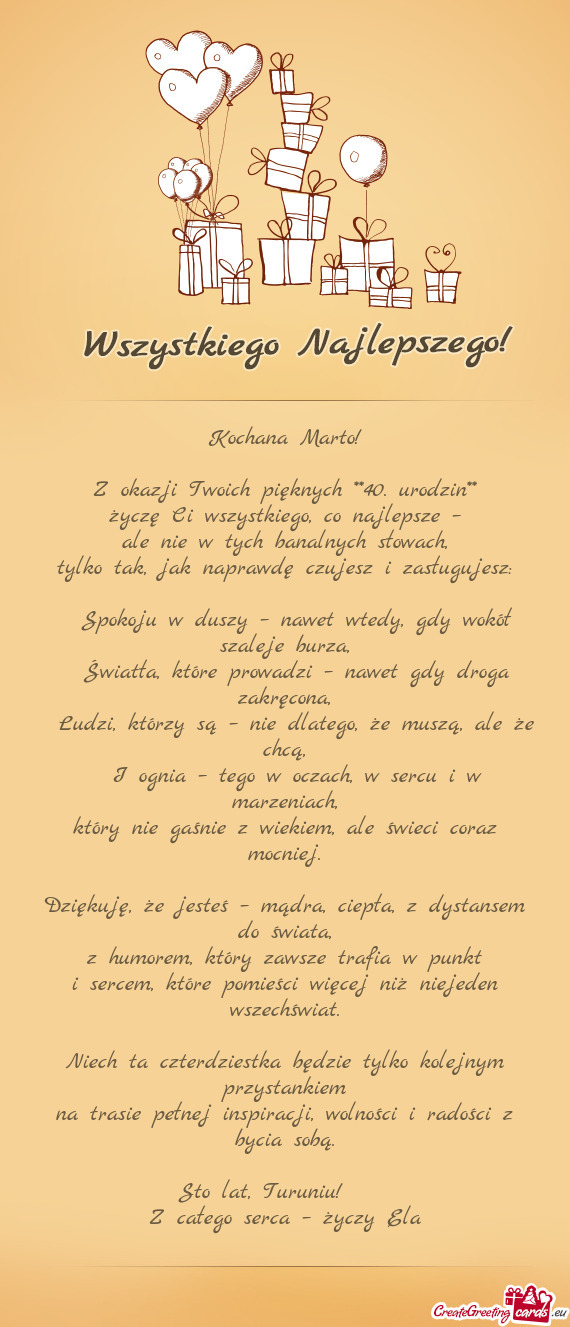 Wszystkiego Najlepszego!
Kochana Marto!
Z okazji Twoich pięknych **40. urodzin**
życzę Ci wszystkiego, co najlepsze –
ale nie w tych banalnych słowach,
tylko tak, jak naprawdę czujesz i zasługujesz:
Spokoju w duszy – nawet wtedy, gdy wokół
szaleje burza,
Światła, które prowadzi – nawet gdy droga
zakręcona,
Ludzi, którzy są – nie dlatego, że muszą, ale że
chcą,
I ognia – tego w oczach, w sercu i w
marzeniach,
który nie gaśnie z wiekiem, ale świeci coraz
mocniej.
Dziękuję, że jesteś – mądra, ciepła, z dystansem
do świata,
z humorem, który zawsze trafia w punkt
i sercem, które pomieści więcej niż niejeden
wszechświat.
Niech ta czterdziestka będzie tylko kolejnym
przystankiem
na trasie pełnej inspiracji, wolności i radości z
bycia sobą.
Sto lat, Turuniu!
Z całego serca – życzy Ela
CreateGreeting cards .eu